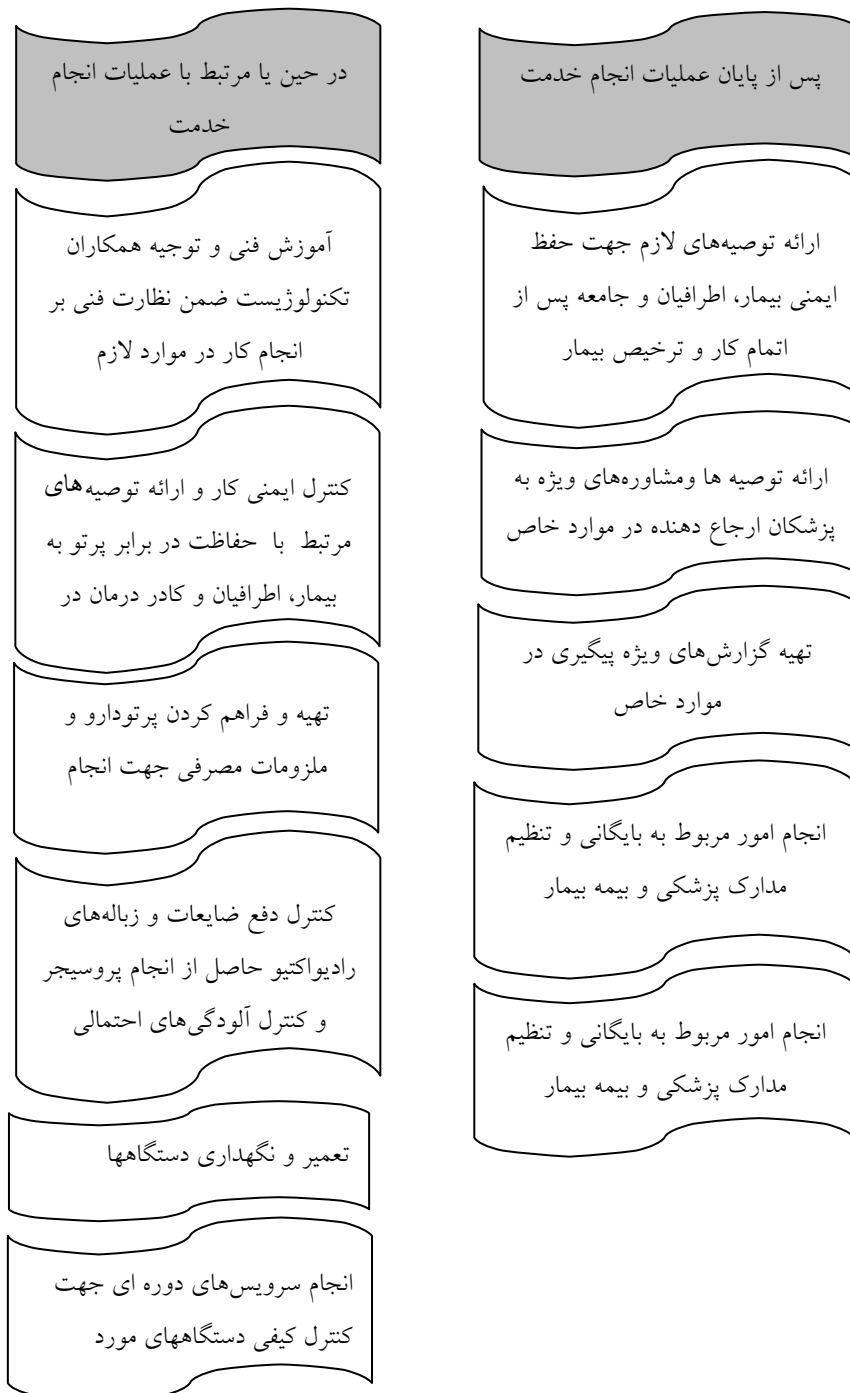 پس از پایان عملیات انجام خدمت
ارائه توصیه‌های لازم جهت حفظ
ایمنی بیمار، اطرافیان و جامعه پس از
اتمام کار و ترخیص بیمار
ارائه توصیه ها ومشاوره‌های ویژه به
پزشکان ارجاع دهنده در موارد خاص
تهیه گزارش‌های ویژه پیگیری در
موارد خاص
انجام امور مربوط به بایگانی و تنظیم
مدارک پزشکی و بیمه بیمار
انجام امور مربوط به بایگانی و تنظیم
مدارک پزشکی و بیمه بیمار
در حین یا مرتبط با عملیات انجام
خدمت
آموزش فنی و توجیه همکاران
تکنولوژیست ضمن نظارت فنی بر
انجام کار در موارد لازم
کنترل ایمنی کار و ارائه توصیه‌های
مرتبط با حفاظت در برابر پرتو به
بیمار، اطرافیان و کادر درمان در
تهیه و فراهم کردن پرتودارو و
ملزومات مصرفی جهت انجام
کنترل دفع ضایعات و زباله‌های
رادیواکتیو حاصل از انجام پروسیجر
و کنترل آلودگی‌های احتمالی
تعمیر و نگهداری دستگاهها
انجام سرویس‌های دوره ای جهت
کنترل کیفی دستگاههای مورد